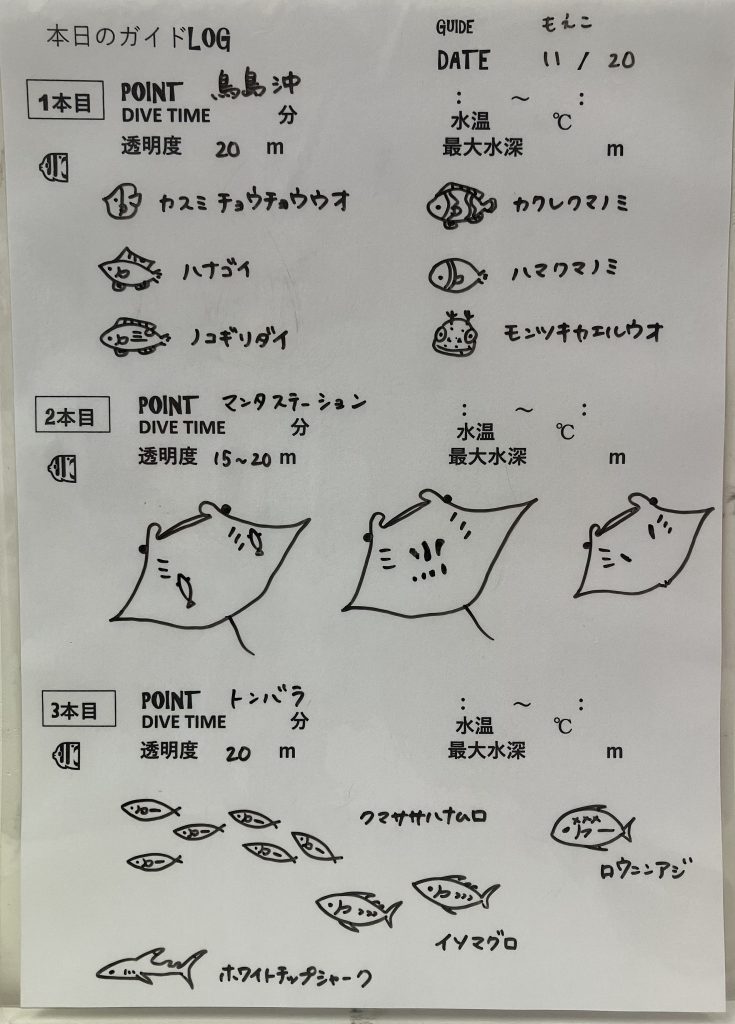 本日のガイドLOG
GUIDE もえこ
DATE 11 / 20
1本目 POINT 鳥島沖 : ～ :
DIVE TIME 分 水温 ℃
透明度 20 m 最大水深 m
カスミチョウチョウウオ カクレクマノミ
ハナゴイ ハマクマノミ
ノコギリダイ モンツキカエルウオ
2本目 POINT マンタステーション : ～ :
DIVE TIME 分 水温 ℃
透明度 15～20 m 最大水深 m
3本目 POINT トンバラ : ～ :
DIVE TIME 分 水温 ℃
透明度 20 m 最大水深 m
クマササハナムロ
ロウニンアジ
イソマグロ
ホワイトチップシャーク